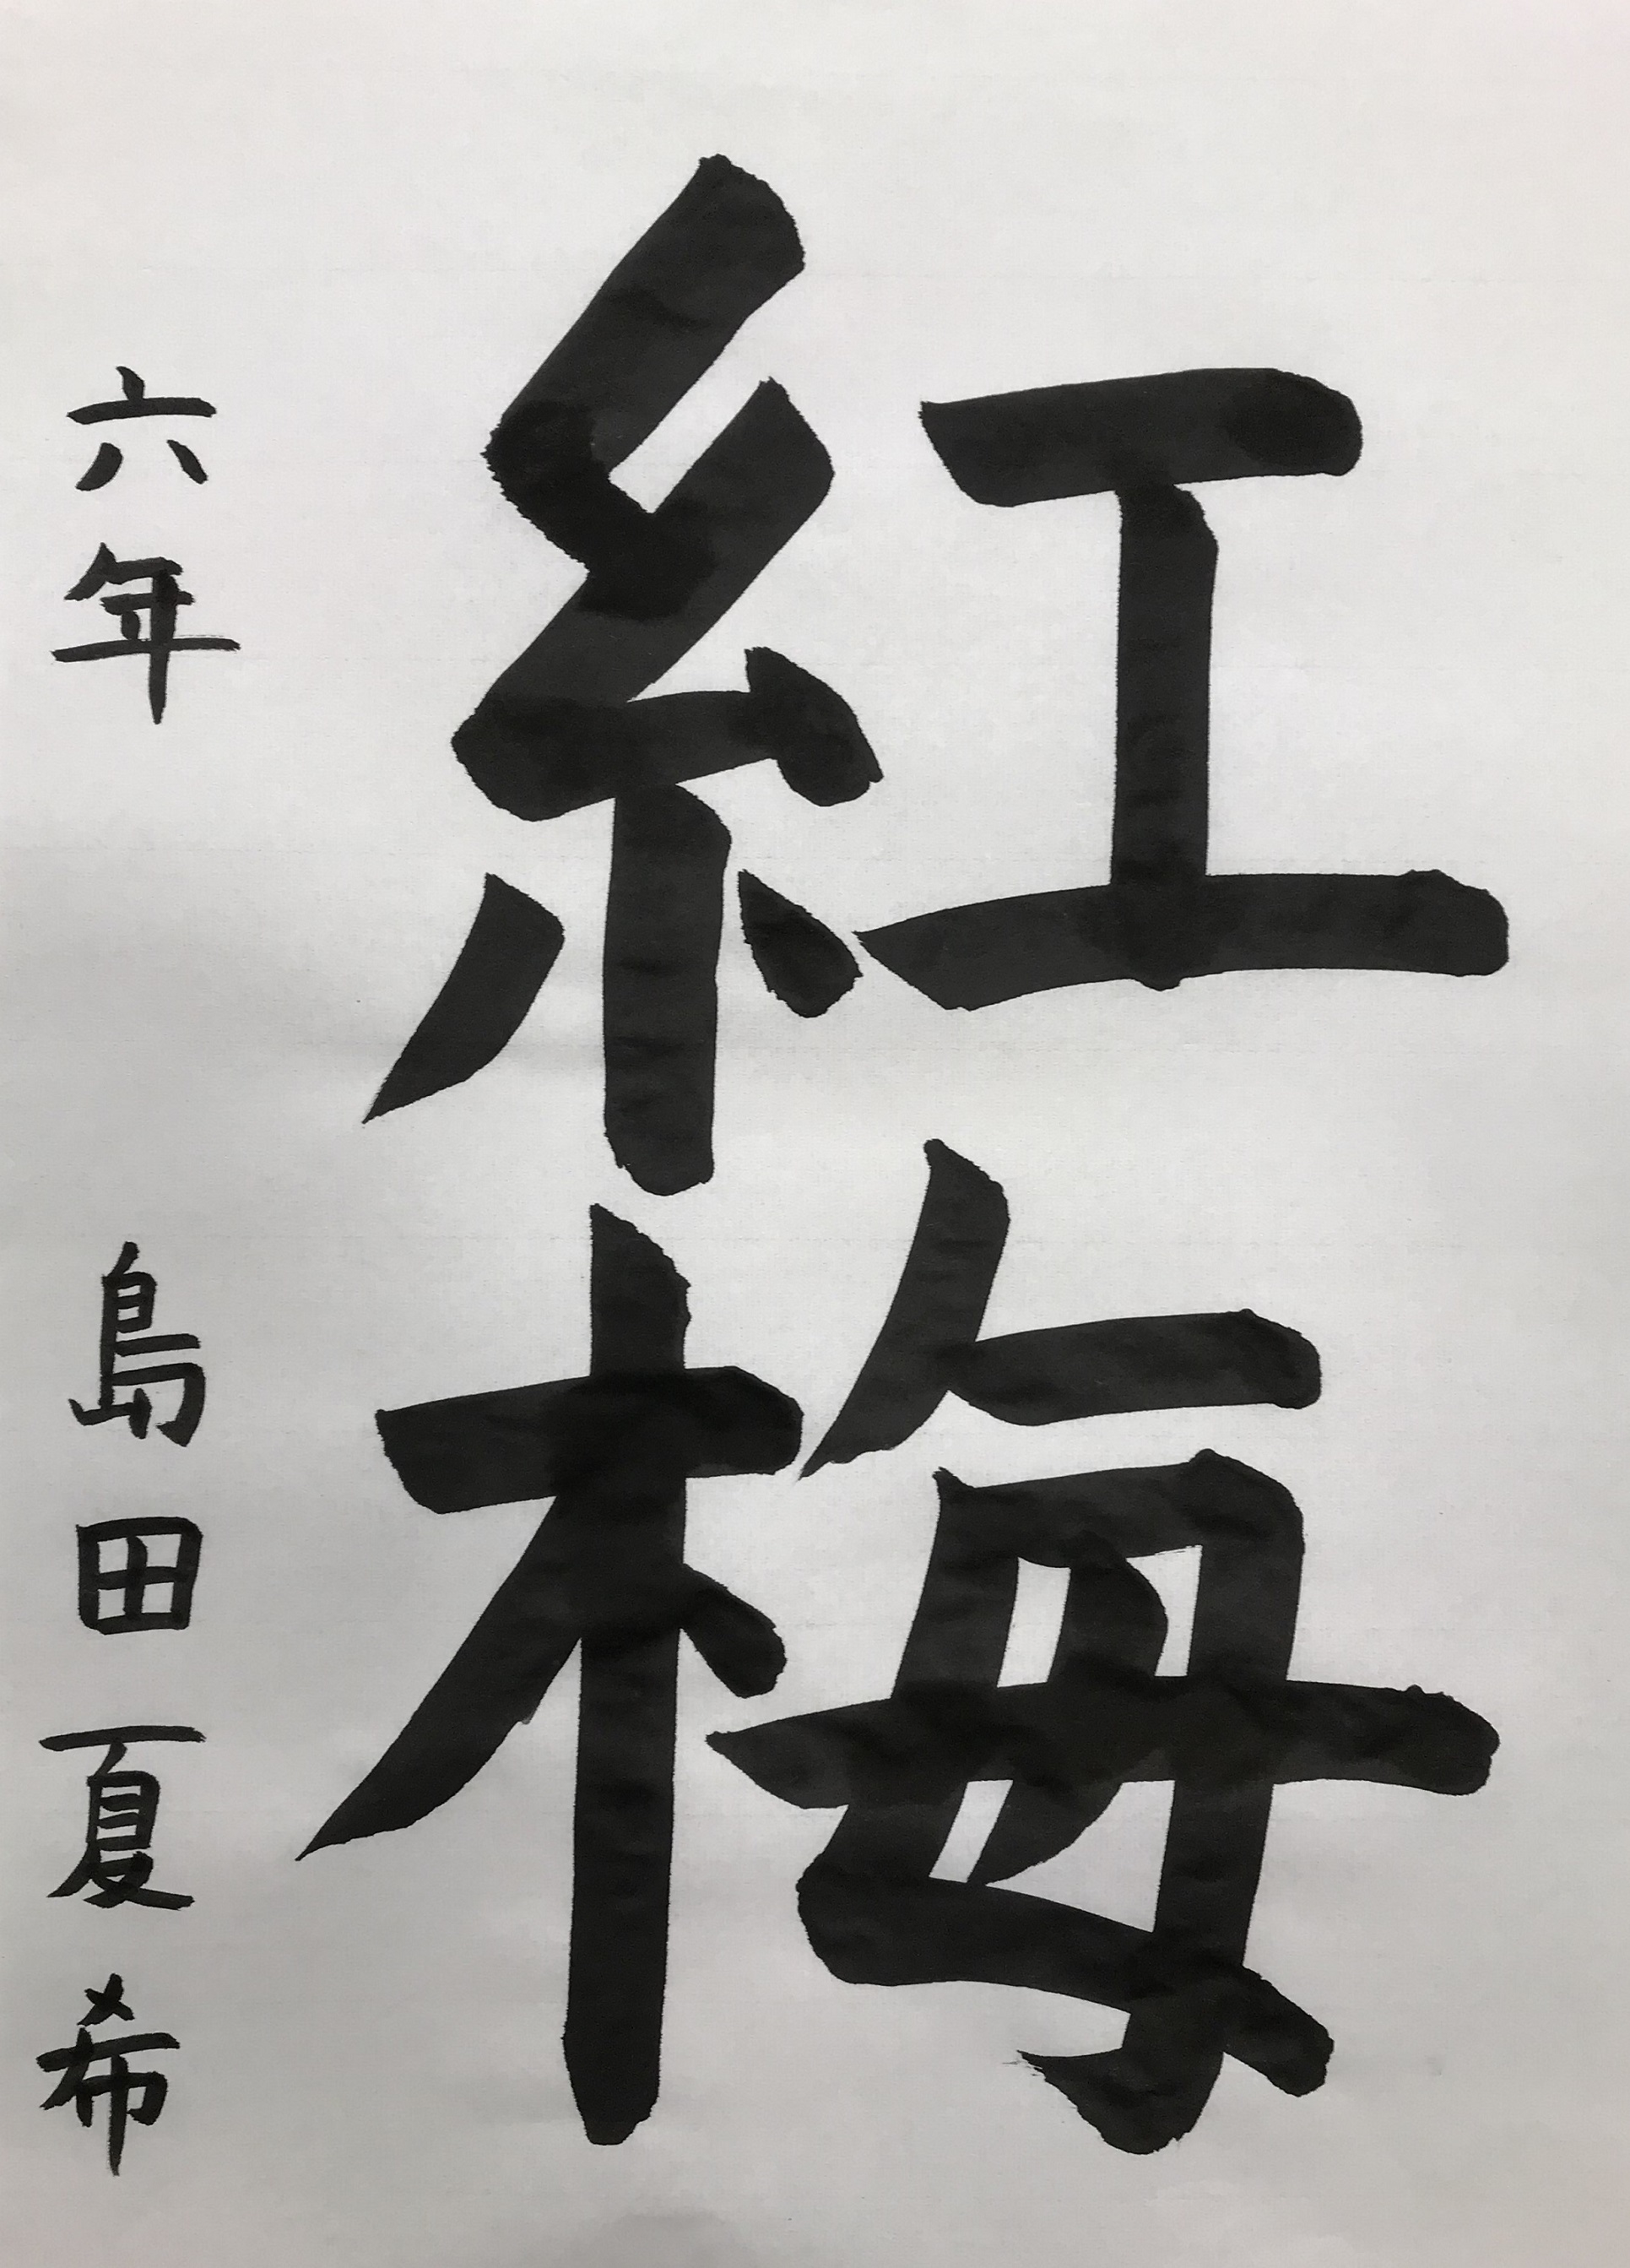 紅梅
六年 島田夏希